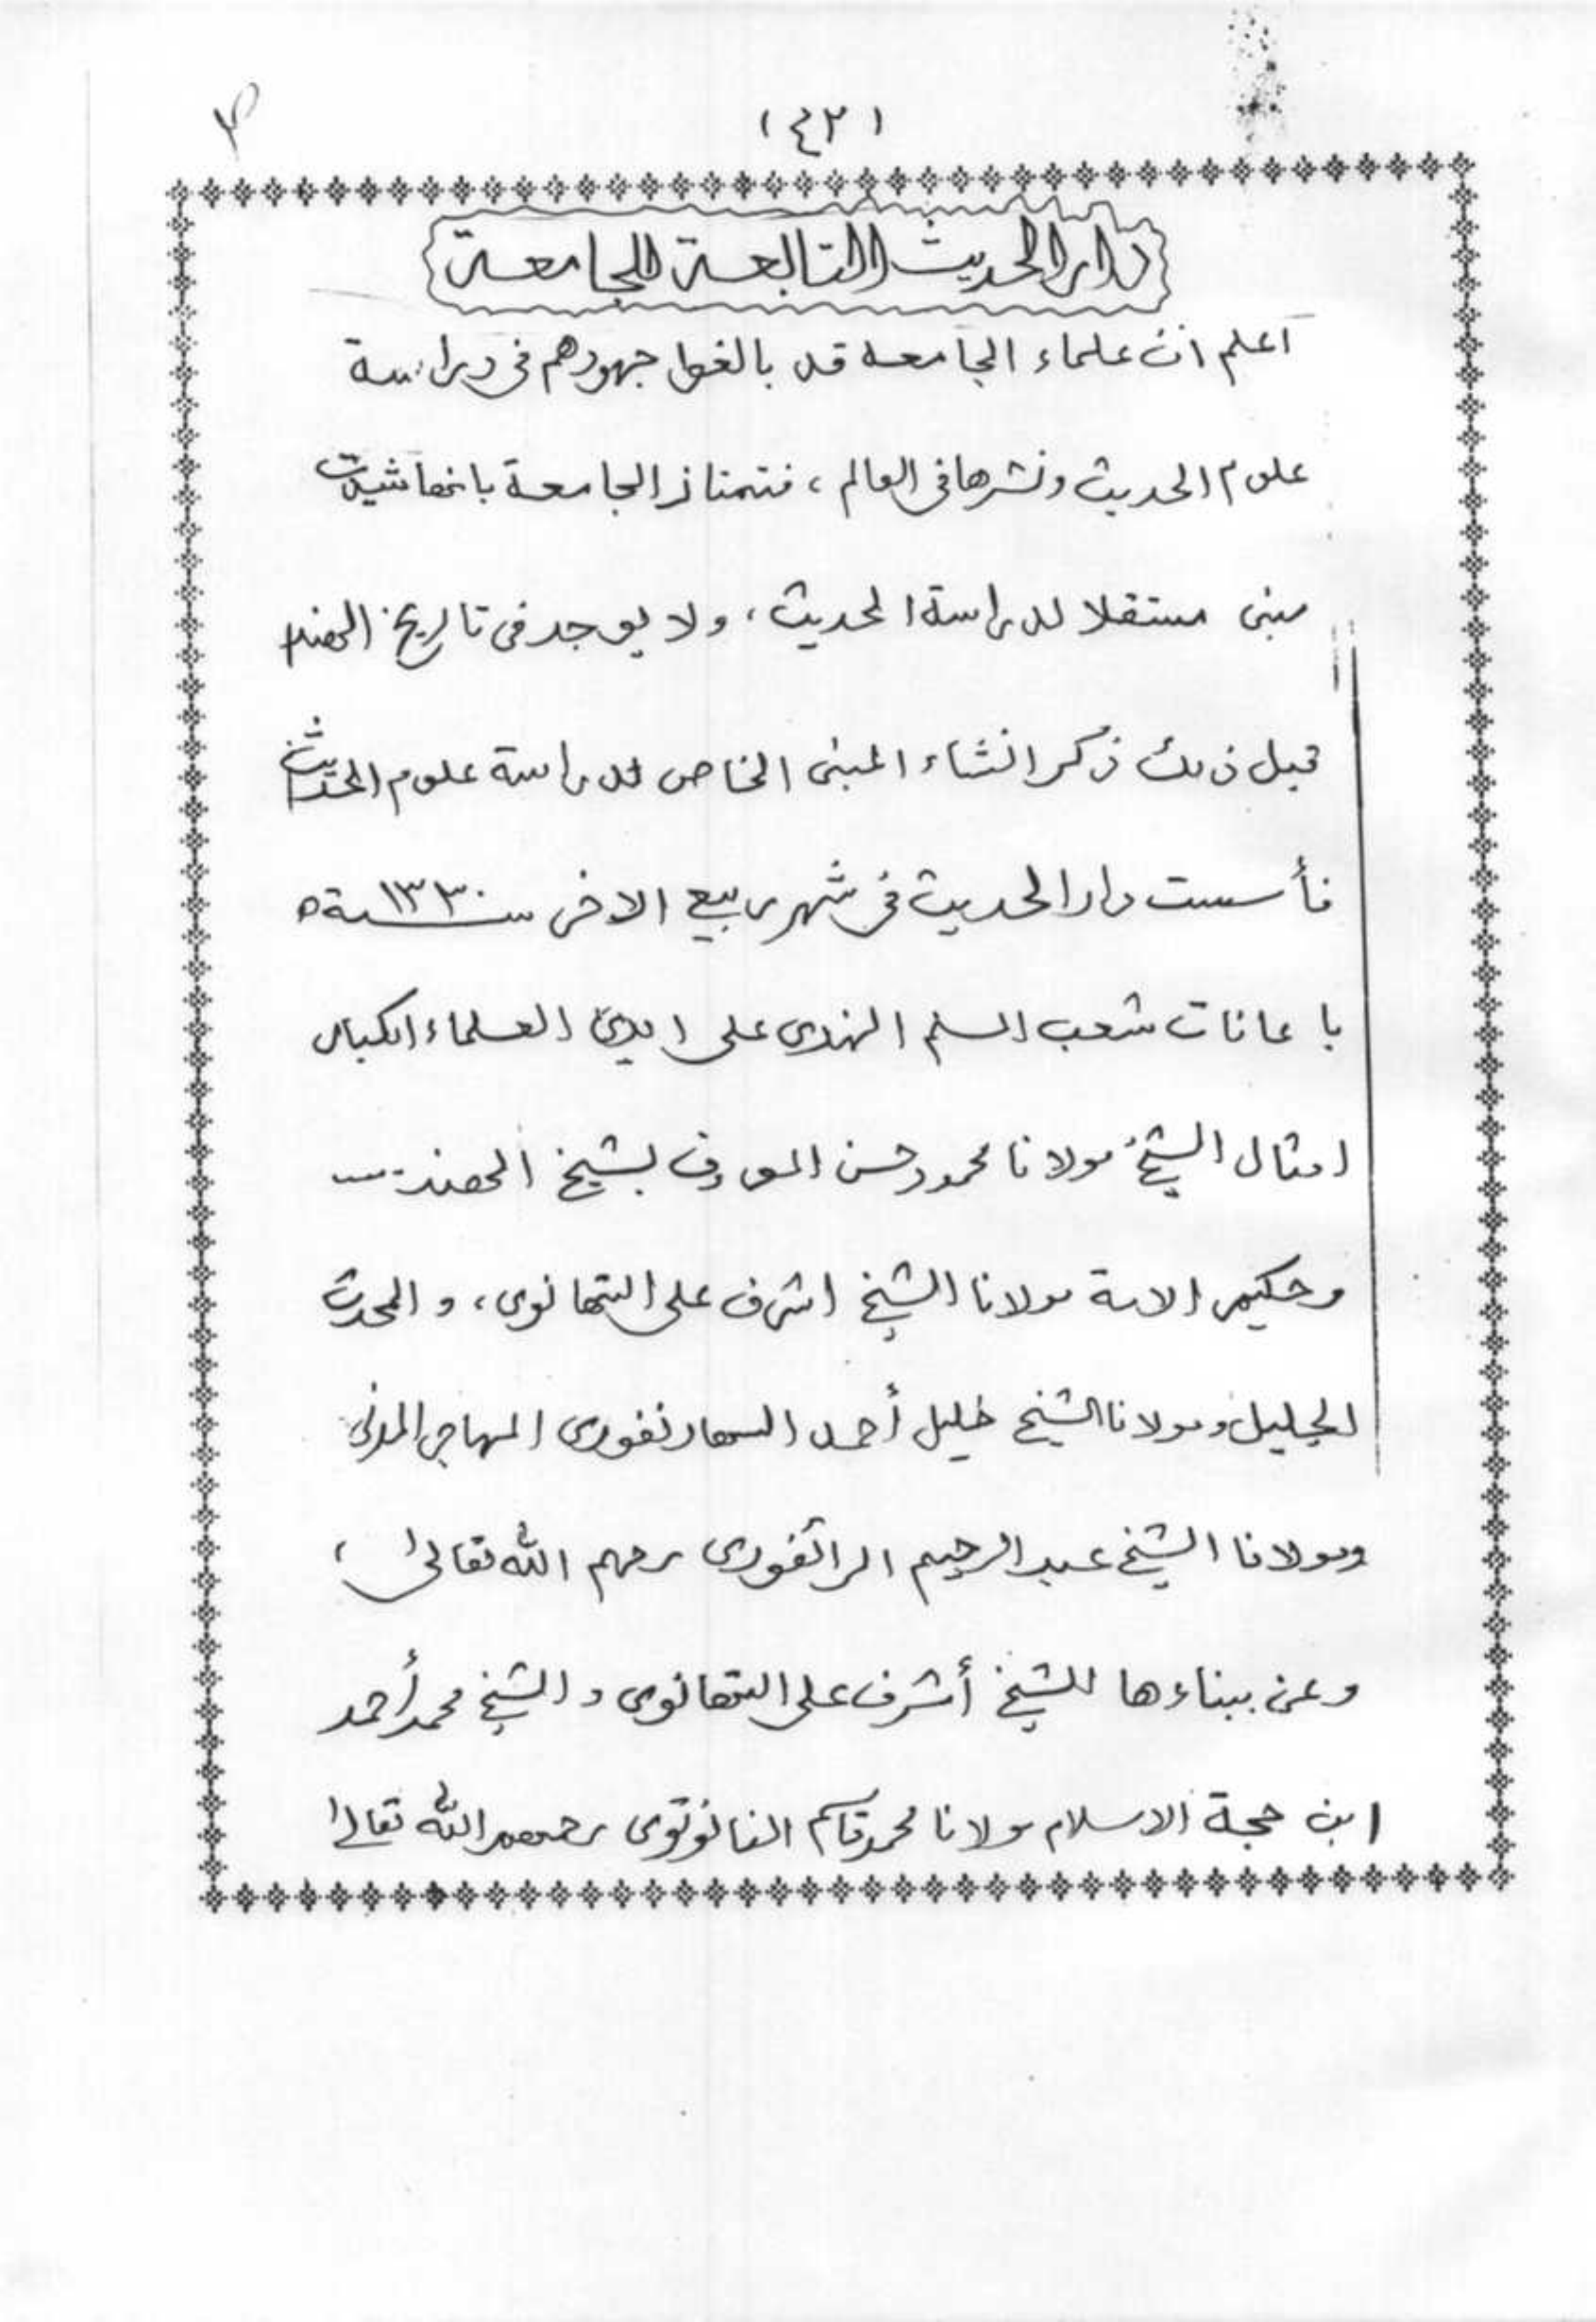 (٤٢)
دار الحديث التابعة للجامعة
اعلم ان علماء الجامعه قد بالغوا جهودهم فى دراسة
علوم الحديث ونشرها فى العالم ، فتمتاز الجامعة بانها شيدت
مبنى مستقلا لدراسة الحديث ، ولا يوجد فى تاريخ الهند
قبل ذلك ذكر انشاء المبنى الخاص لدراسة علوم الحديث
فأسست دار الحديث فى شهر ربيع الاخر سنة ١٣٣٠ه
باعانات شعب المسلم الهندى على ايدى العلماء الكبار
امثال الشيخ مولانا محمود حسن المعروف بشيخ الهند
وحكيم الامة مولانا الشيخ اشرف على التهانوى ، و المحدث
الجليل ومولانا الشيخ خليل أحمد السهارنفورى المهاجر المدنى
ومولانا الشيخ عبد الرحيم الرائفورى رحمهم الله تعالى ،
وعنى ببناءها الشيخ أشرف على التهانوى و الشيخ محمد أحمد
ابن حجة الاسلام مولانا محمد قاسم النانوتوى رحمهم الله تعالى